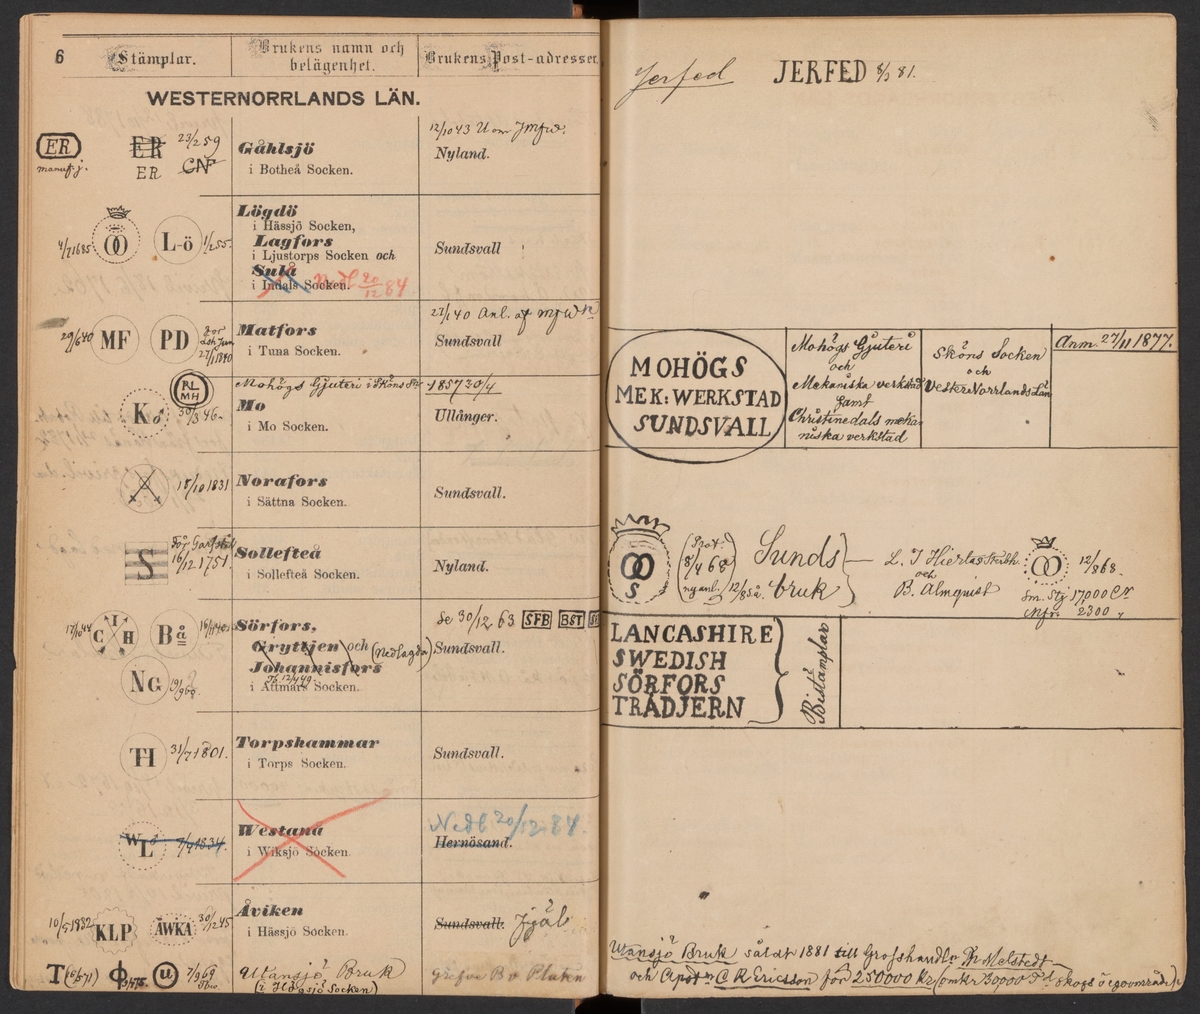 6
Stämplar.
Brukens namn och
belägenhet.
Brukens Post-adresser.
WESTERNORRLANDS LÄN.
ER ER 23/2 59
manuf. j. ER CN
Gåhlsjö
i Botheå Socken.
Nyland.
L-ö
Lögdö
i Hässjö Socken,
Lagfors
i Ljustorps Socken och
Sulå
i Indals Socken.
20/12 84
Sundsvall
29/6 40 MF PD
Matfors
i Tuna Socken.
Sundsvall
RL
MH
K♂ 30/3 46.
Mohögs Gjuteri i Sköns Sn 1857 30/4
Mo
i Mo Socken.
Ullånger.
18/10 1831
Norafors
i Sättna Socken.
Sundsvall.
S 16/12 1751.
Sollefteå
i Sollefteå Socken.
Nyland.
C I H Bå
NG
Sörfors,
Gryttjen och (Nedlagda)
Johannisfors
i Attmars Socken.
Se 30/12 63 SFB BST
Sundsvall.
TH 31/7 1801.
Torpshammar
i Torps Socken.
Sundsvall.
WL♂ 7/9 1834.
Westanå
i Wiksjö Socken.
Nedl 20/12 84.
Hernösand.
10/5 1832 KLP ÅWKA 30/12 45
Åviken
i Hässjö Socken.
Sundsvall.
T Φ U 7/9 69
Utansjö Bruk
(i Högsjö Socken)
Grefve B v Platen
Jerfed JERFED 8/3 81.
MOHÖGS
MEK: WERKSTAD
SUNDSVALL
Mohögs Gjuteri
och
Mekaniska verkstad
samt
Christinedals meka-
niska verkstad
Sköns Socken
och
Vester Norrlands Län
Anm. 27/11 1877.
S
(Prot. 8/4 68
ny anl. 12/8 s.å.)
Sunds
bruk
L. J Hiertas Sterbh.
och
B. Almquist
12/8 68.
Sm. Stj 17,000 Cr
Mfr. 2300 "
LANCASHIRE
SWEDISH
SÖRFORS
TRÅDJERN
Bistämplar
Utansjö Bruk såldt 1881 till Grosshandl. Melstedt
och C R Ericsson för 250000 Kr (omkr 30000 Skogs o egoområde)